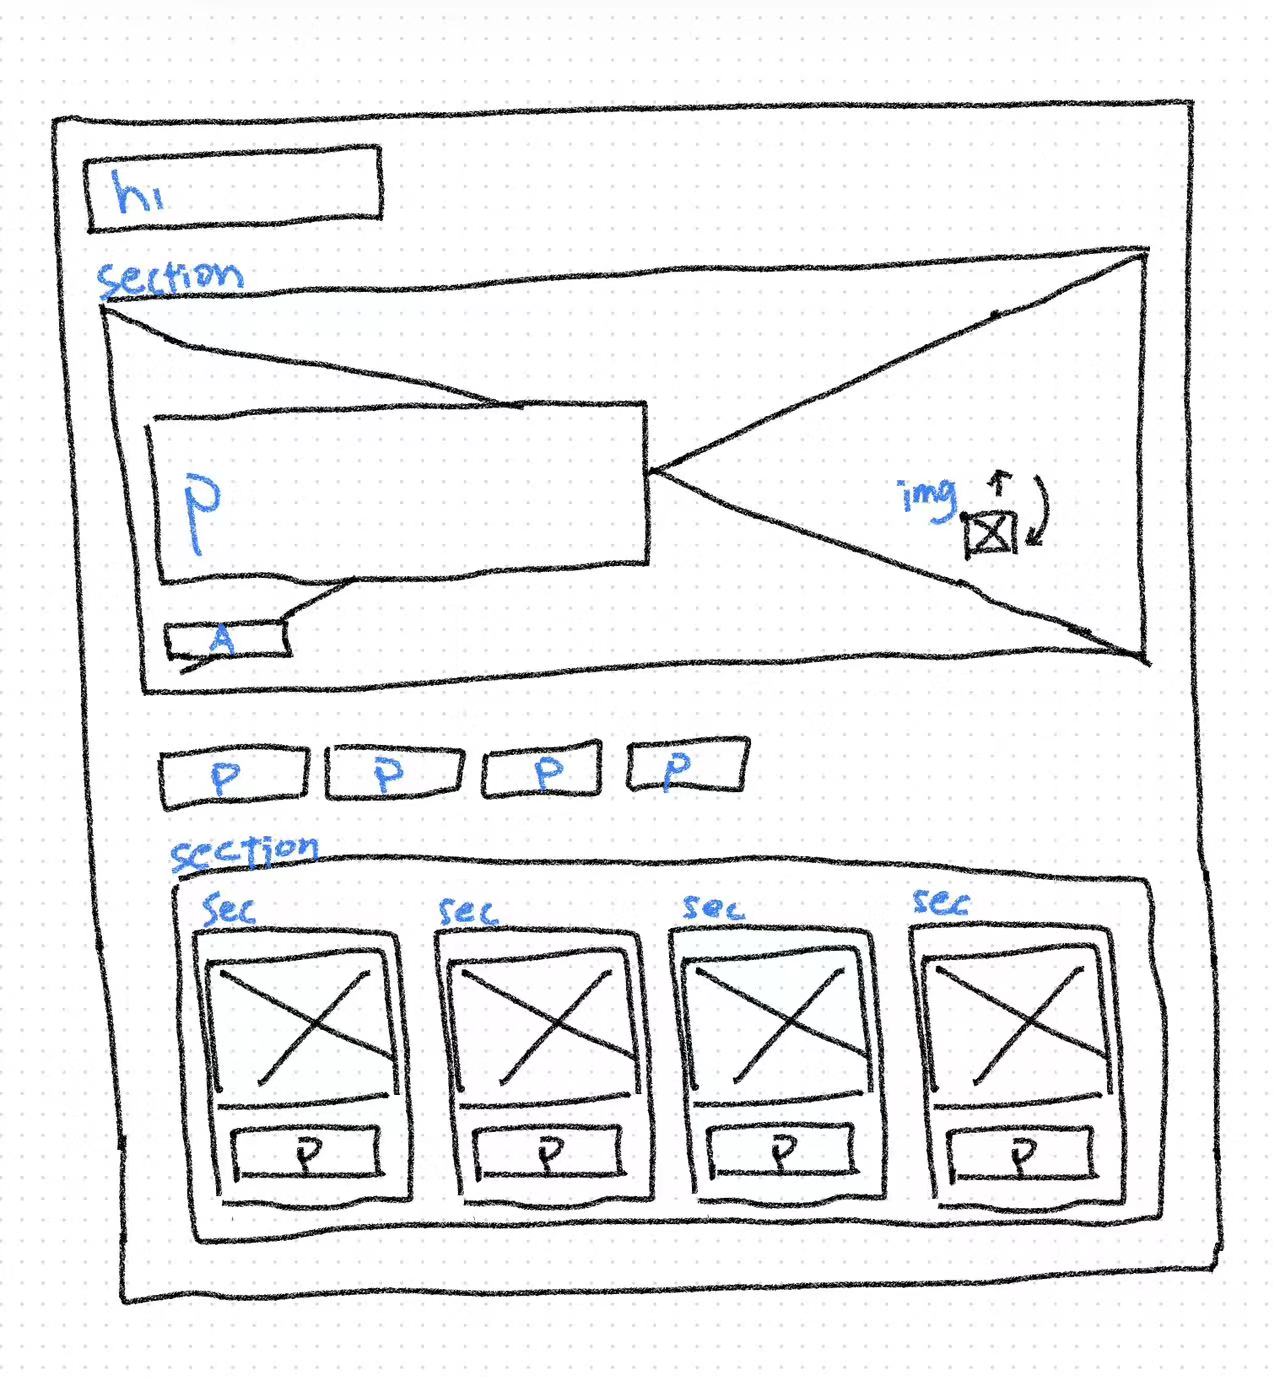 h1
section
p
img
A
P P P P
section
sec sec sec sec
P P P P